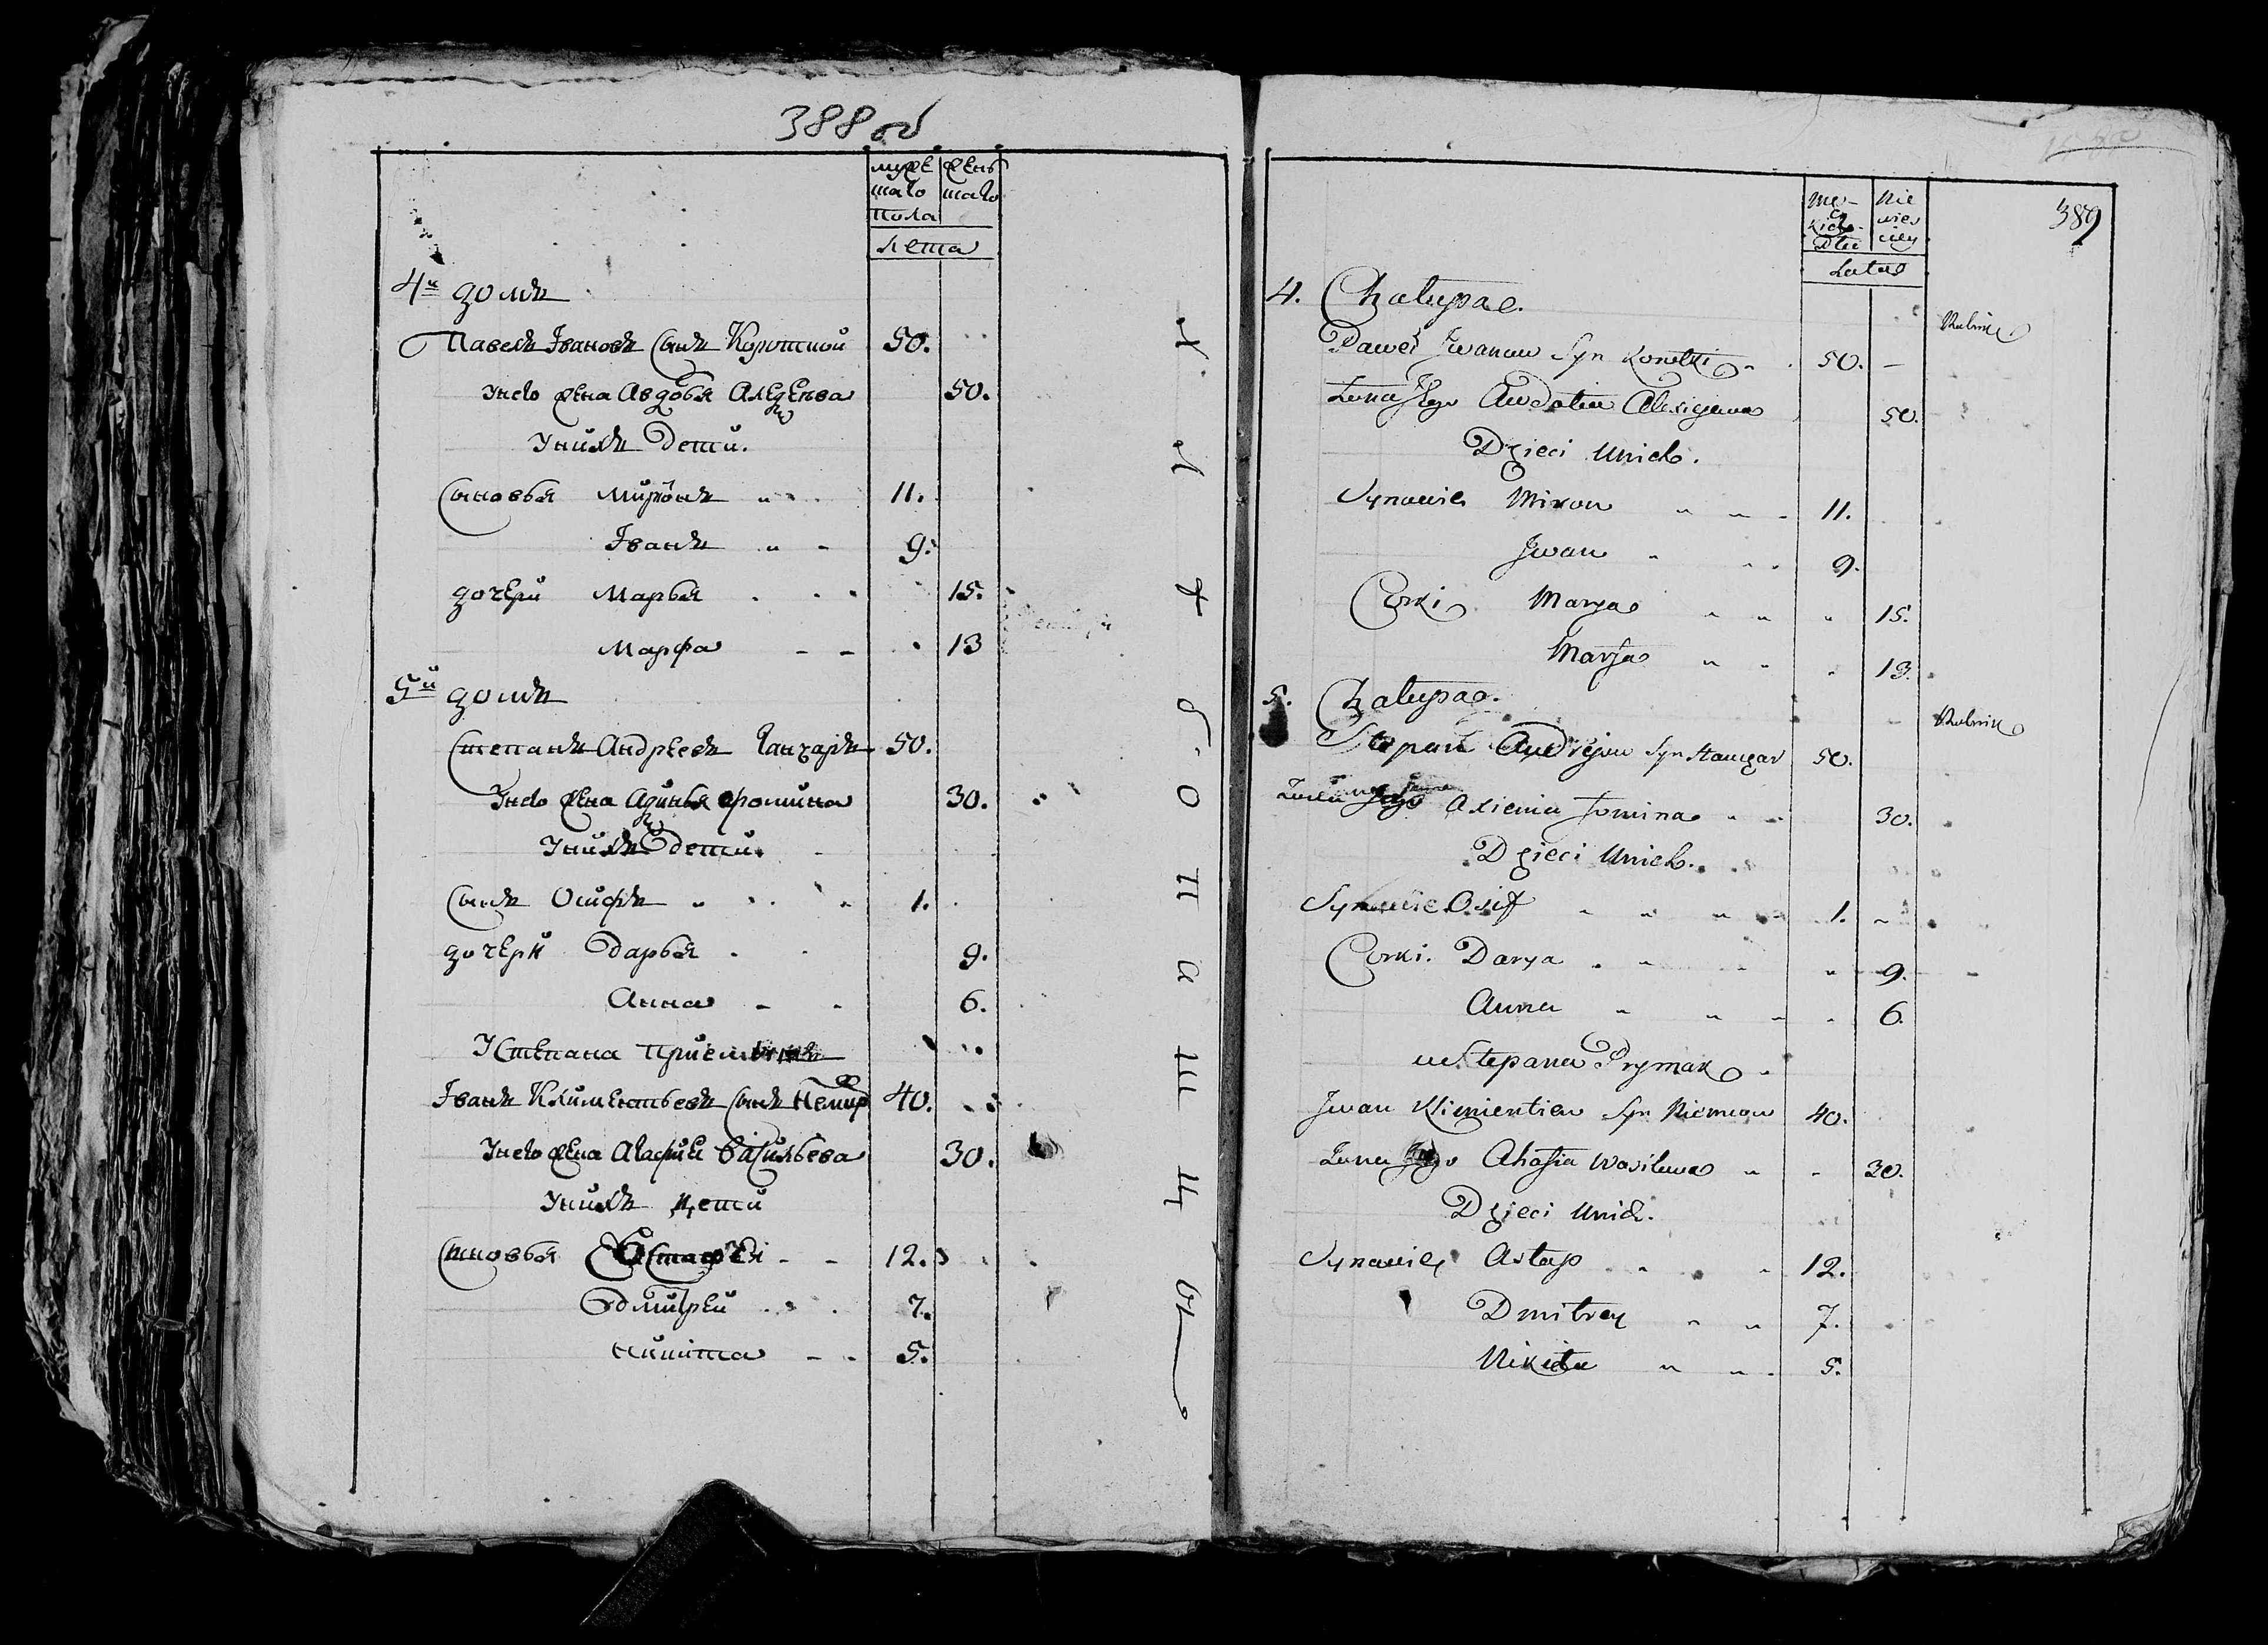 388 об
муже женъ
スкаго скаго
пола
лета
4й домъ
Павелъ Ивановъ сынъ Короткой 50.
Унего жена Авдотья Алеѯеева 50.
Унихъ дети.
Сыновья Миронъ 11.
Іванъ 9.
дочери Марья 15.
Марфа 13
5й домъ
Степанъ Андреевъ Ганчаръ 50.
Унего жена Аѯинья Фомина 30.
Унихъ дети.
Сынъ Осифъ 1.
дочери Дарья 9.
Анна 6.
УСтепана
Іванъ Климентьевъ сынъ 40.
Унего жена Агафия Васильева 30.
Унихъ дети
Сыновья Естафей 12.
Дмитрей 7.
Никита 5.
389
Męs- Nie
kich wies
Płci ciey
Lata
4. Chałupa.
Rolnik
Paweł Jwanow Syn Korotki 50.
Żona Jego Awdotia Alexiejewa 50.
Dzieci Unich.
Synowie Miron 11.
Jwan 9.
Corki Marya 15.
Marfa 13.
5. Chałupa.
Rolnik
Stepan Andrejow Syn Hanczar 50.
Żona Jego Axienia Fomina 30.
Dzieci Unich.
Synowie Osif 1.
Corki. Darya 9.
Anna 6.
u Stepana Prymak
Jwan Klimientiew Syn 40.
Żona Jego Ahafia Wasilewa 30.
Dzieci Unich.
Synowie Astap 12.
Dmitrey 7.
Nikita 5.